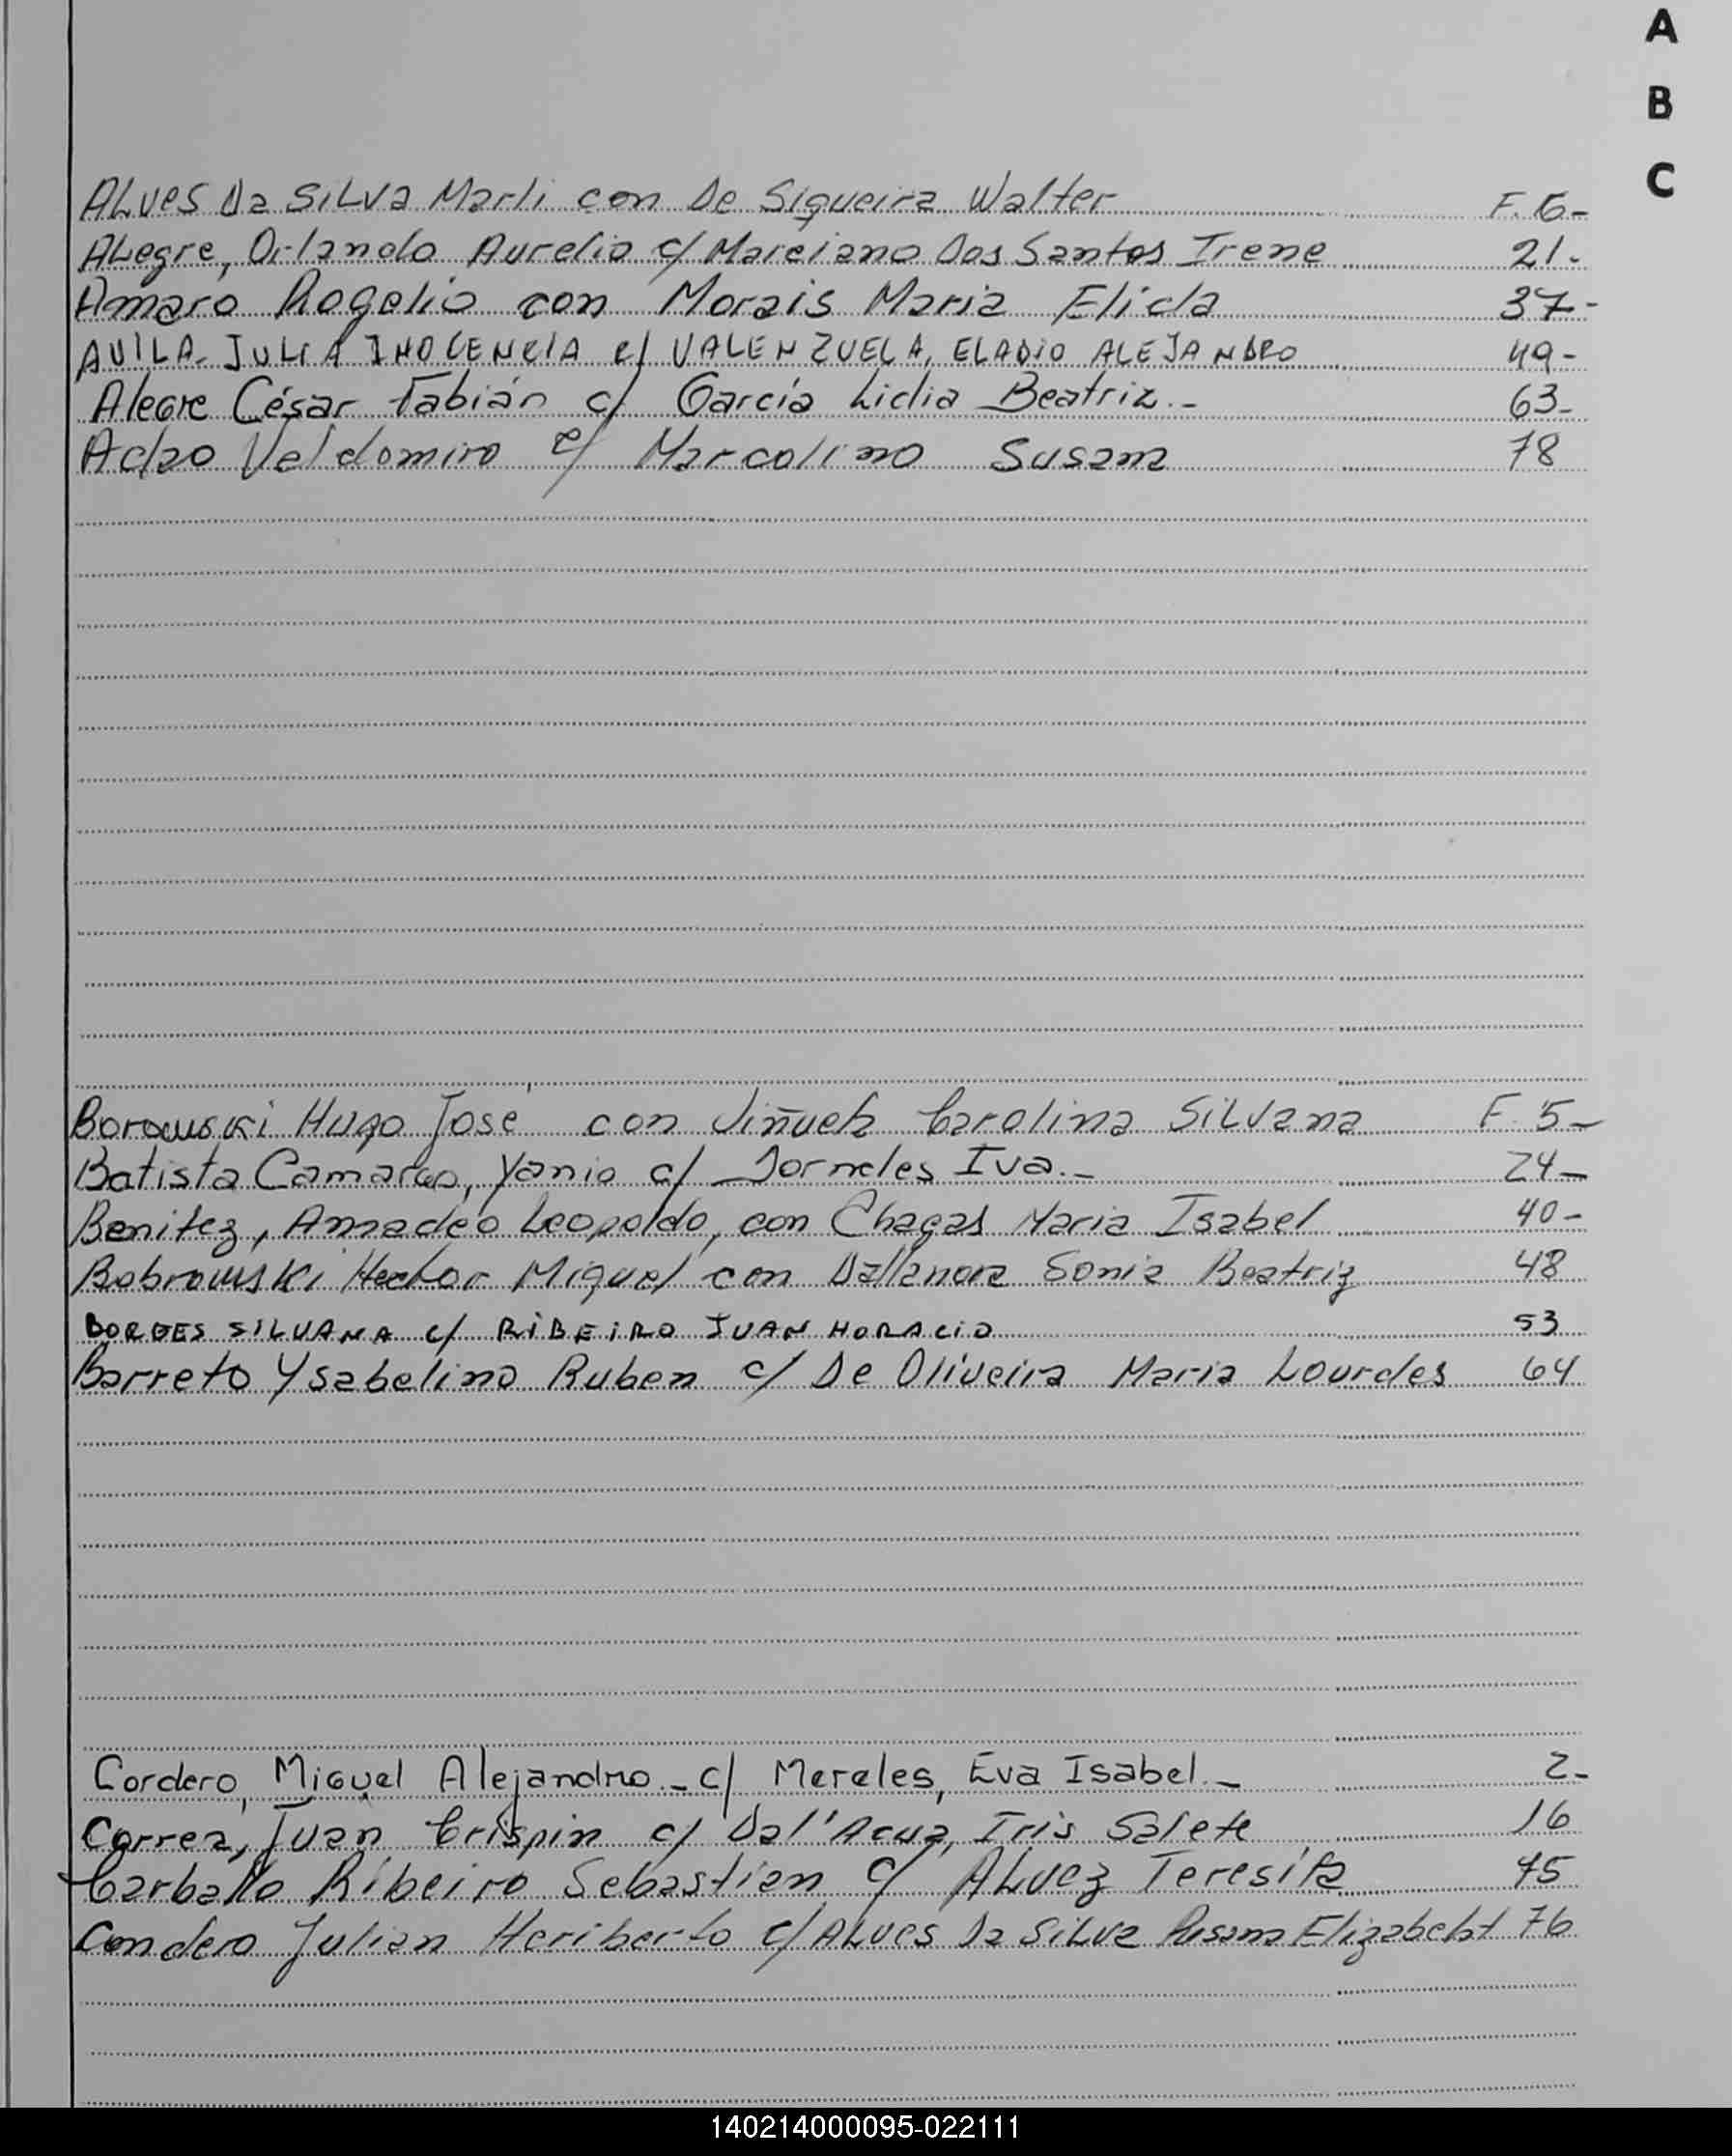 A
B
C
ALves Da SiLva Marli con De Siqueira Walter F. 6-
ALegre, Orlando Aurelio c/ Marciano Dos Santos Irene 21.-
Amaro Rogelio con Morais Maria Elida 37-
AVILA. JULIA INOCENCIA c/ VALENZUELA, ELADIO ALEJANDRO 49-
Alegre César Fabián c/ García Lidia Beatriz.- 63-
Adao Valdomiro c/ Marcolino Susana 78
Borowski Hugo José con Viñuela Carolina SiLvana F. 5-
Batista Camargo, Yanio c/ Dorneles Iva.- 24-
Benitez, Amadeo Leopoldo, con Chagas Maria Isabel 40-
Bobrowski Hector Miguel con Dallanora Sonia Beatriz 48
BORGES SILVANA c/ RIBEIRO JUAN HORACIO 53
Barreto Ysabelino Ruben c/ De Oliveira Maria Lourdes 64
Cordero, Miguel Alejandro.- c/ Mereles, Eva Isabel.- 2-
Correa, Juan Crispin c/ Dal'Acua, Iris Salete 16
Carballo Ribeiro Sebastian c/ ALvez Teresita 45
Cordero Julian Heriberto c/ ALves Da SiLva Elizabeht 76
140214000095-022111